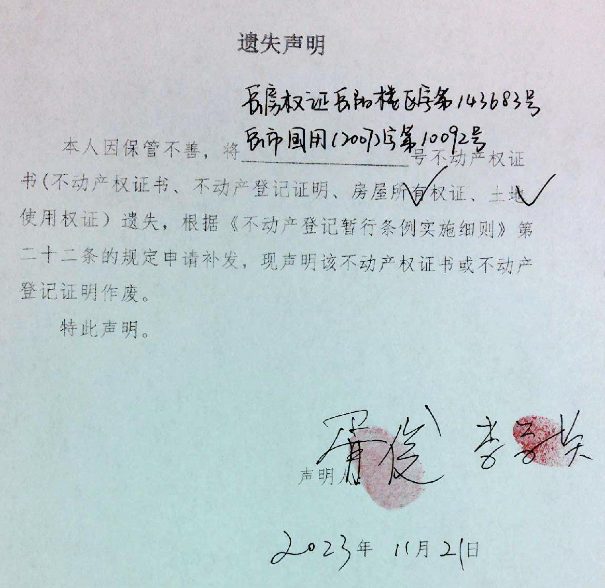 遗失声明
长房权证岳阳楼区字第143683号
岳市国用(2007)字第10092号
本人因保管不善，将 号不动产权证
书(不动产权证书、不动产登记证明、房屋所有权证、土地
使用权证）遗失，根据《不动产登记暂行条例实施细则》第
二十二条的规定申请补发，现声明该不动产权证书或不动产
登记证明作废。
特此声明。
声明人 屠俊 李 英
2023年 11月21日